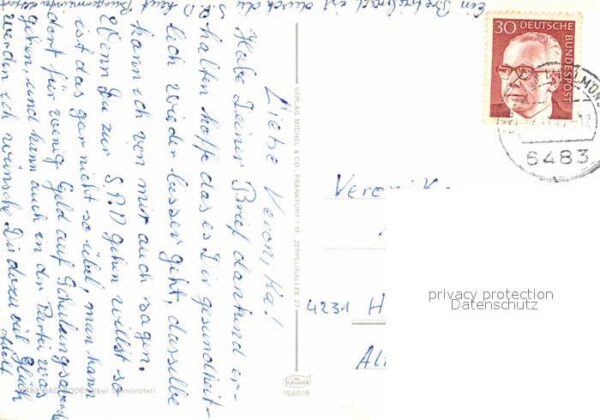 Liebe Veronika!
Habe Deinen Brief dankend er-
halten hoffe das es Dir gesundheit-
lich wieder besser geht, dasselbe
kann ich von mir auch sagen.
Wenn Du zur S.P.D gehen willst so
ist das gar nicht so übel, man kann
dort für wenig Geld auf Schulungs
gehen, und kann auch in der Partei was
werden ich wünsche Dir dazu viel Glück
Adolf
Ein ist durch die S P D
VERLAG MICHEL & CO. FRANKFURT / M. ZEPPELINALLEE 27
1540/9
30 DEUTSCHE BUNDESPOST
6483
4231 H
Al
privacy protection
Datenschutz